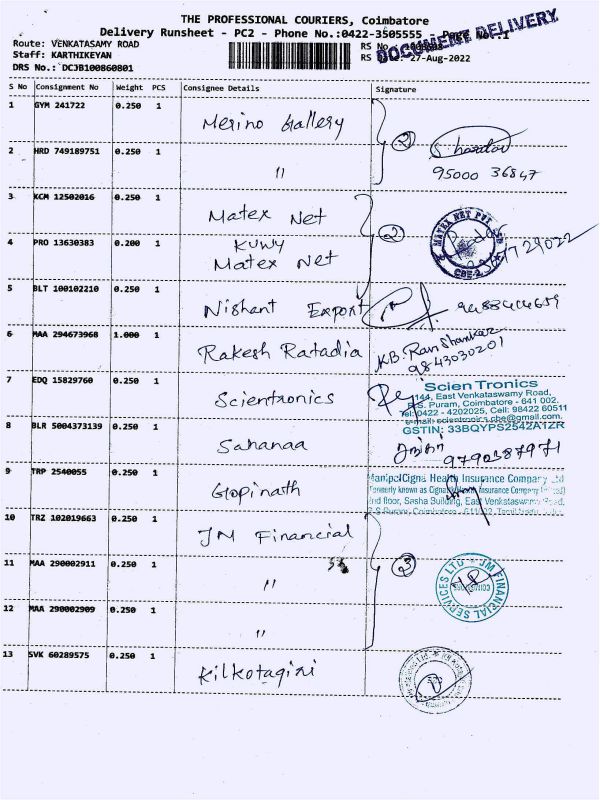 THE PROFESSIONAL COURIERS, Coimbatore
Delivery Runsheet - PC2 - Phone No.:0422-3505555 - Page No.:1
DOCUMENT DELIVERY
Route: VENKATASAMY ROAD RS No
Staff: KARTHIKEYAN RS Date: 27-Aug-2022
DRS No.: DCJB100860801
S No Consignment No Weight PCS Consignee Details Signature
1 GYM 241722 0.250 1 Merino Gallery
2 HRD 749189751 0.250 1 " 2 95000 36847
3 KCM 12502016 0.250 1 Matex Net
4 PRO 13630383 0.200 1 Matex Net 2
MATEX NET PVT LTD
CBE-2
5 BLT 100102210 0.250 1 Nishant Export
6 MAA 294673968 1.000 1 Rakesh Ratadia K.B. Ravi Shankar
9843030201
7 EDQ 15829760 0.250 1 Scientronics
Scien Tronics
144, East Venkataswamy Road,
R.S. Puram, Coimbatore - 641 002.
Tel: 0422 - 4202025, Cell: 98422 60511
e-mail: scientronics.cbe@gmail.com
GSTIN: 33BQYPS2542A1ZR
8 BLR 5004373139 0.250 1 Sahanaa
9790387971
9 TRP 2540055 0.250 1 Gopinath
ManipalCigna Health Insurance Company Ltd
(Formerly known as Cigna Insurance Company
2nd floor, Sasha Building, East Venkataswamy Road,
10 TRZ 102019663 0.250 1 JM Financial
11 MAA 290002911 0.250 1 " 3
JM FINANCIAL SERVICES LTD
12 MAA 290002909 0.250 1 "
13 SVK 60289575 0.250 1 Kilkotagiri